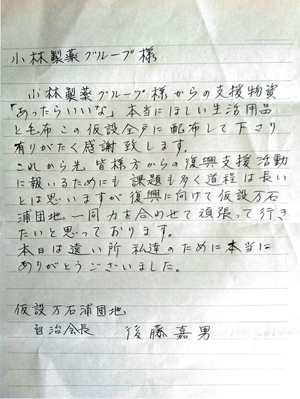 小林製薬グループ様
小林製薬グループ様からの支援物資
「あったらいいな」本当にほしい生活用品
と毛布この仮設全戸に配布して下さり
有りがたく感謝致します。
これから先皆様方からの復興支援活動
に報いるためにも課題も多く道程は長い
とは思いますが復興に向けて仮設万石
浦団地一同力を合わせて頑張って行き
たいと思っております。
本日は遠い所私達のために本当に
ありがとうございました。
仮設万石浦団地
自治会長 後藤嘉男